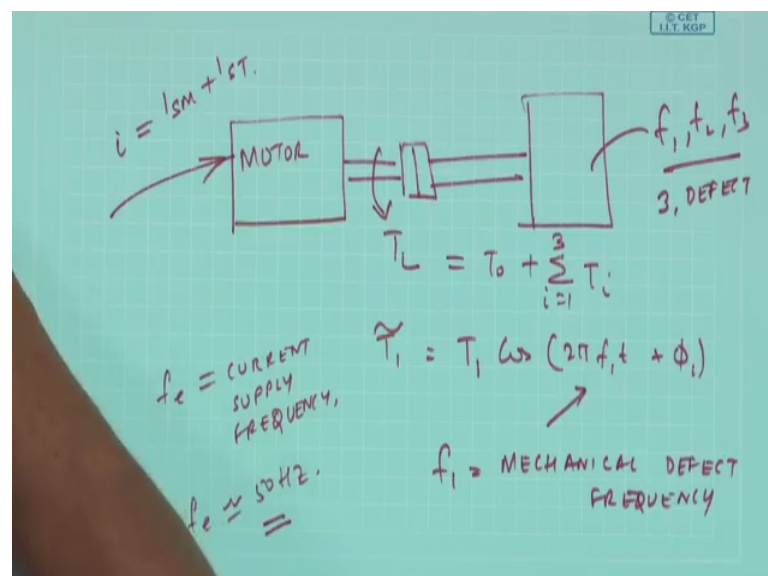 © CET
I.I.T. KGP
i = ism + ist.
MOTOR
f₁, f₂, f₃
3, DEFECT
T_L = T₀ + Σ³ᵢ₌₁ Tᵢ
T̃₁ = T₁ Cos (2π f₁t + ϕ₁)
fe = CURRENT
SUPPLY
FREQUENCY,
f₁ = MECHANICAL DEFECT
FREQUENCY
fe ≈ 50HZ.